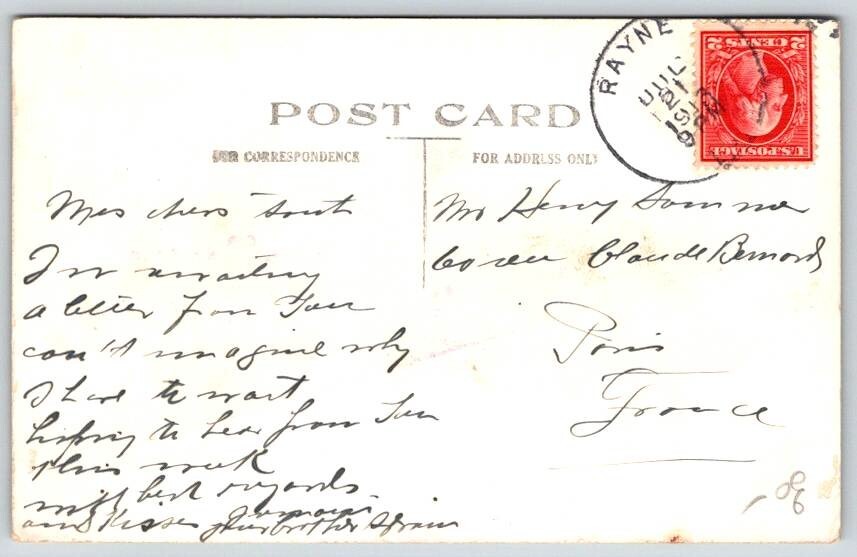 POST CARD
FOR CORRESPONDENCE
FOR ADDRESS ONLY
RAYNE
JUL
21
1913
2 CENTS 2
U.S. POSTAGE
Mes chers
I
a letter from you
can't imagine why
I have to wait
hoping to hear from you
this week
with best regards
and Kisses your brother
Mr Henry Sommer
60 rue Claude Bernard
Paris
France